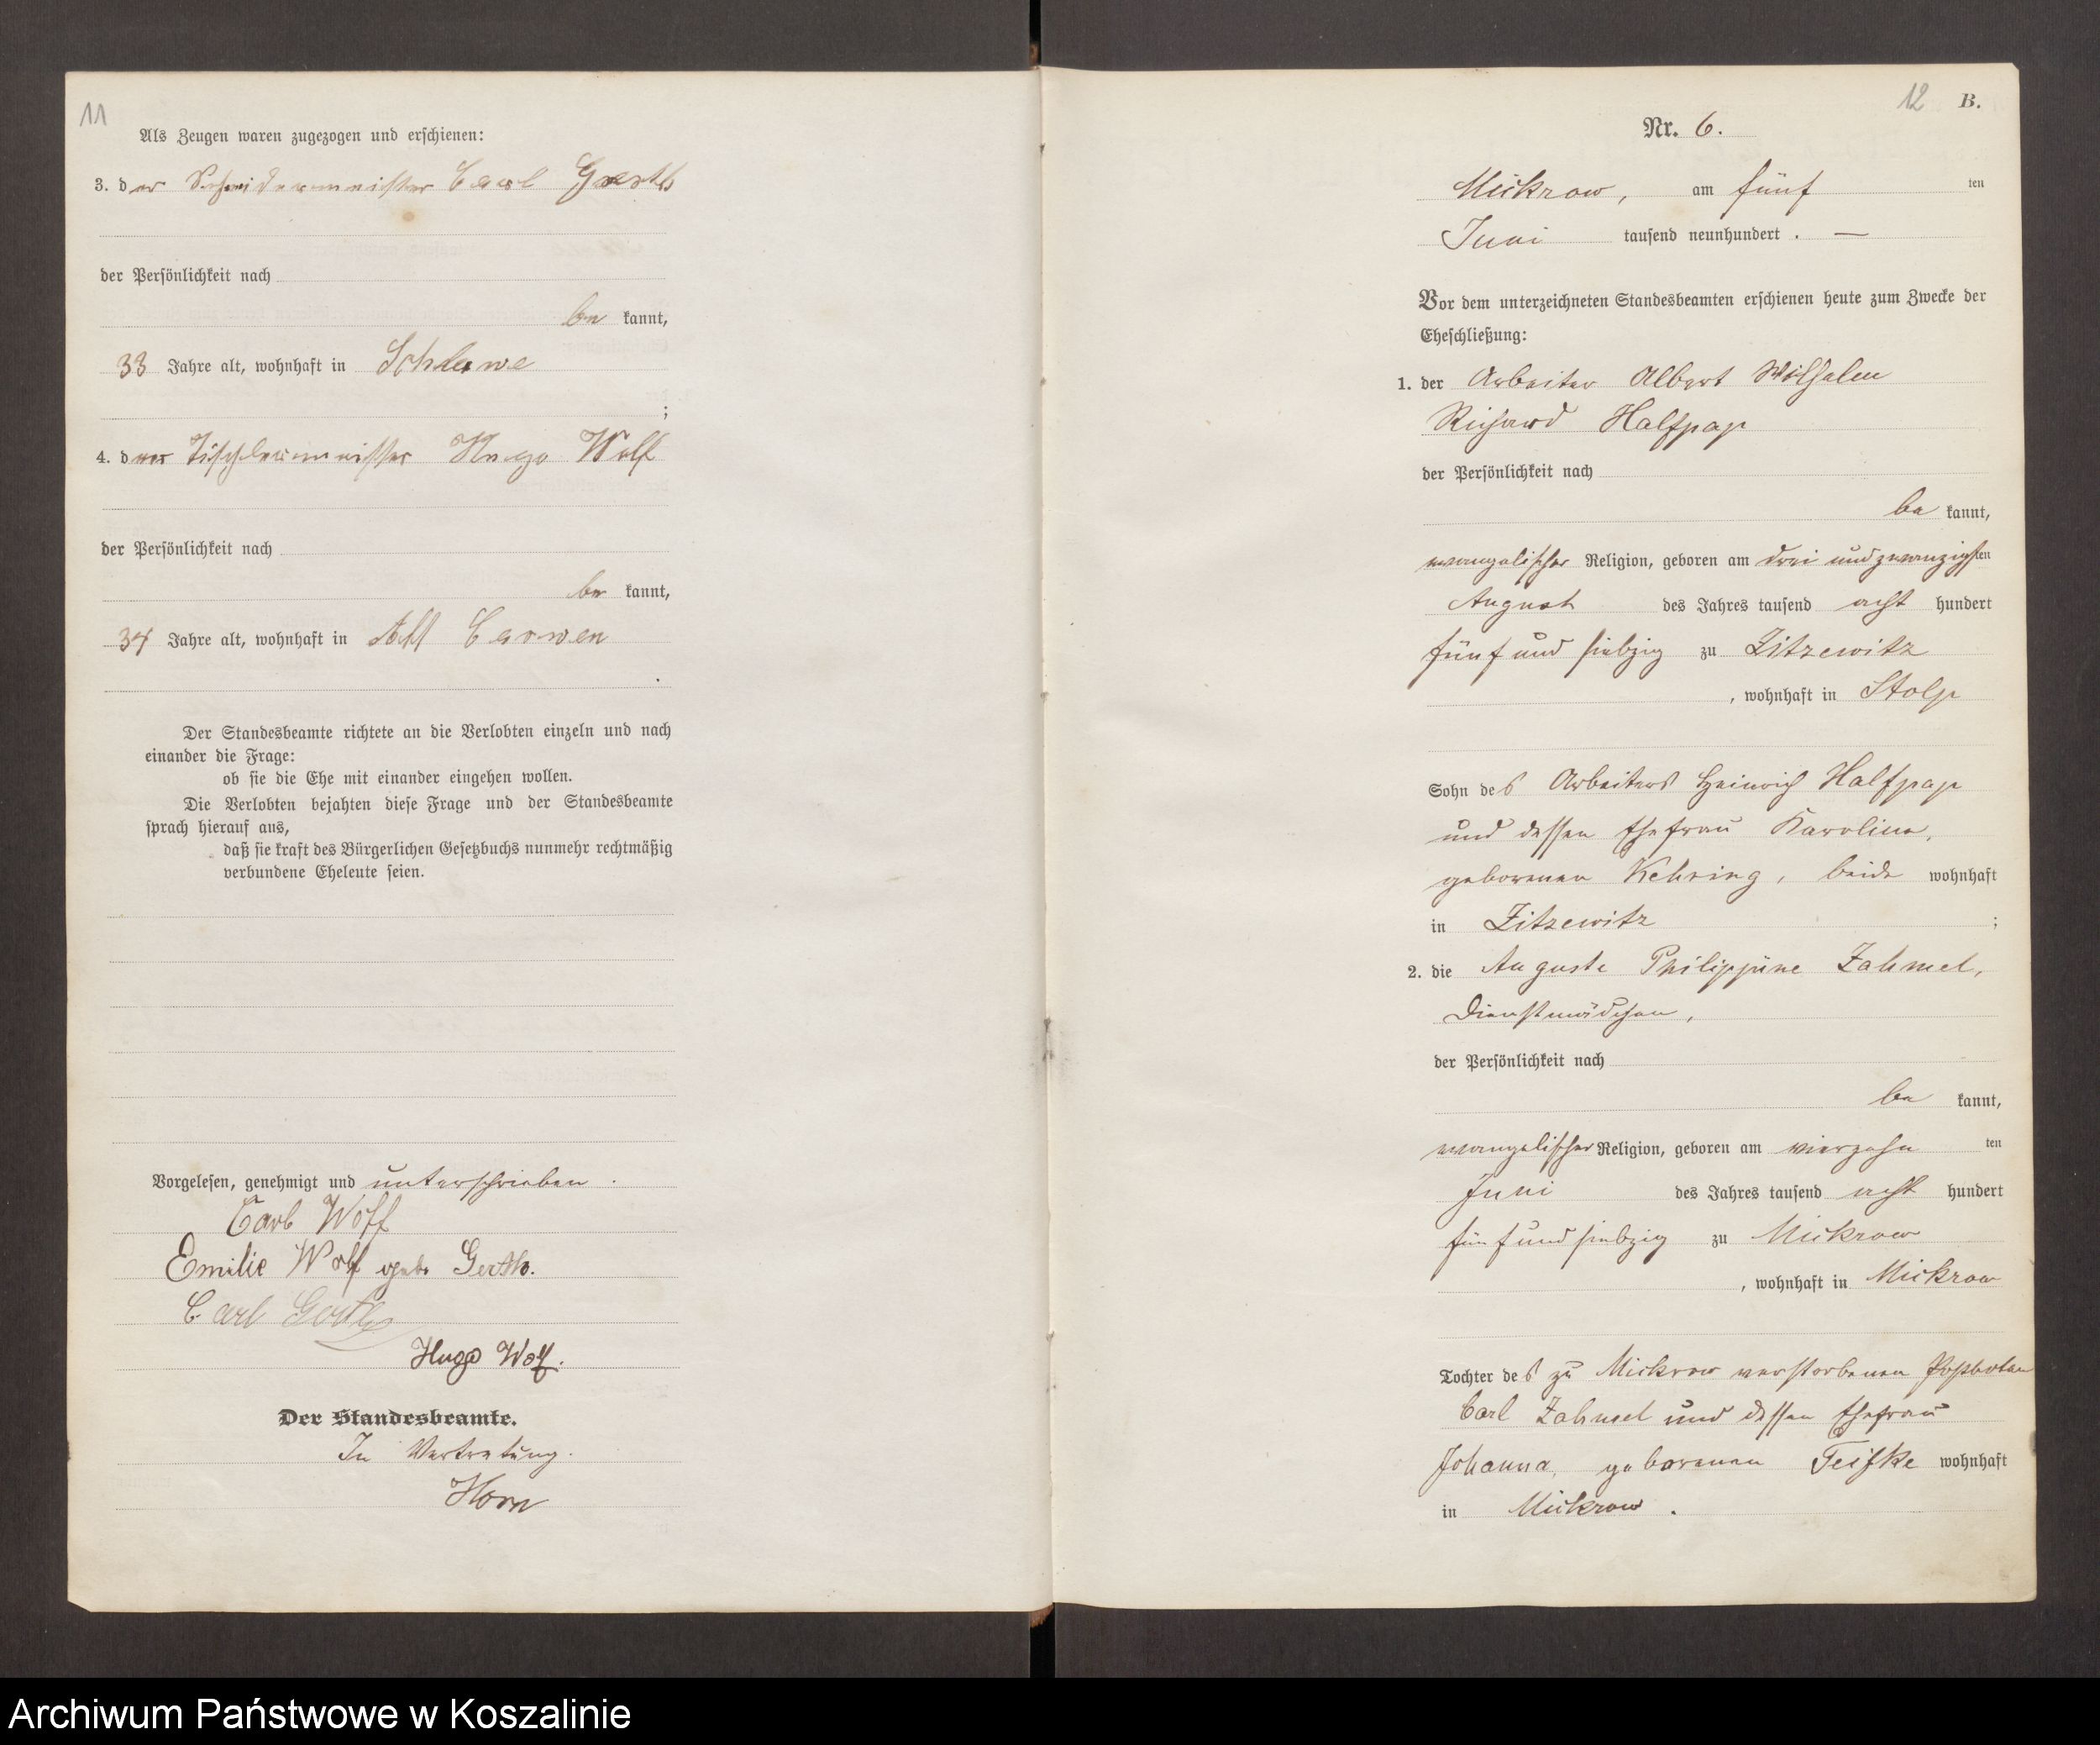 11
Als Zeugen waren zugezogen und erschienen:
3. der Schneidermeister Carl Gerth
der Persönlichkeit nach
be kannt,
33 Jahre alt, wohnhaft in Schlawe
;
4. der Tischlermeister Hugo Wolf
der Persönlichkeit nach
be kannt,
34 Jahre alt, wohnhaft in Alt Carwen
.
Der Standesbeamte richtete an die Verlobten einzeln und nach
einander die Frage:
ob sie die Ehe mit einander eingehen wollen.
Die Verlobten bejahten diese Frage und der Standesbeamte
sprach hierauf aus,
daß sie kraft des Bürgerlichen Gesetzbuchs nunmehr rechtmäßig
verbundene Eheleute seien.
Vorgelesen, genehmigt und unterschrieben.
Carl Wolf
Emilie Wolf geb. Gerth.
Carl Gerth
Hugo Wolf.
Der Standesbeamte.
In Vertretung.
Horn
12 B.
Nr. 6.
Mickrow, am fünf ten
Juni tausend neunhundert . —
Vor dem unterzeichneten Standesbeamten erschienen heute zum Zwecke der
Eheschließung:
1. der Arbeiter Albert Wilhelm
Richard Halfpap
der Persönlichkeit nach
be kannt,
evangelischer Religion, geboren am drei und zwanzigsten
August des Jahres tausend acht hundert
fünf und siebzig zu Zitzewitz
, wohnhaft in Stolp
Sohn des Arbeiters Heinrich Halfpap
und dessen Ehefrau Karoline,
geborenen Kehring, beide wohnhaft
in Zitzewitz ;
2. die Auguste Philippine Zahmel,
Dienstmädchen,
der Persönlichkeit nach
be kannt,
evangelischer Religion, geboren am vierzehn ten
Juni des Jahres tausend acht hundert
fünf und siebzig zu Mickrow
, wohnhaft in Mickrow
Tochter des zu Mickrow verstorbenen Postboten
Carl Zahmel und dessen Ehefrau
Johanna, geborenen Teifke wohnhaft
in Mickrow.
Archiwum Państwowe w Koszalinie